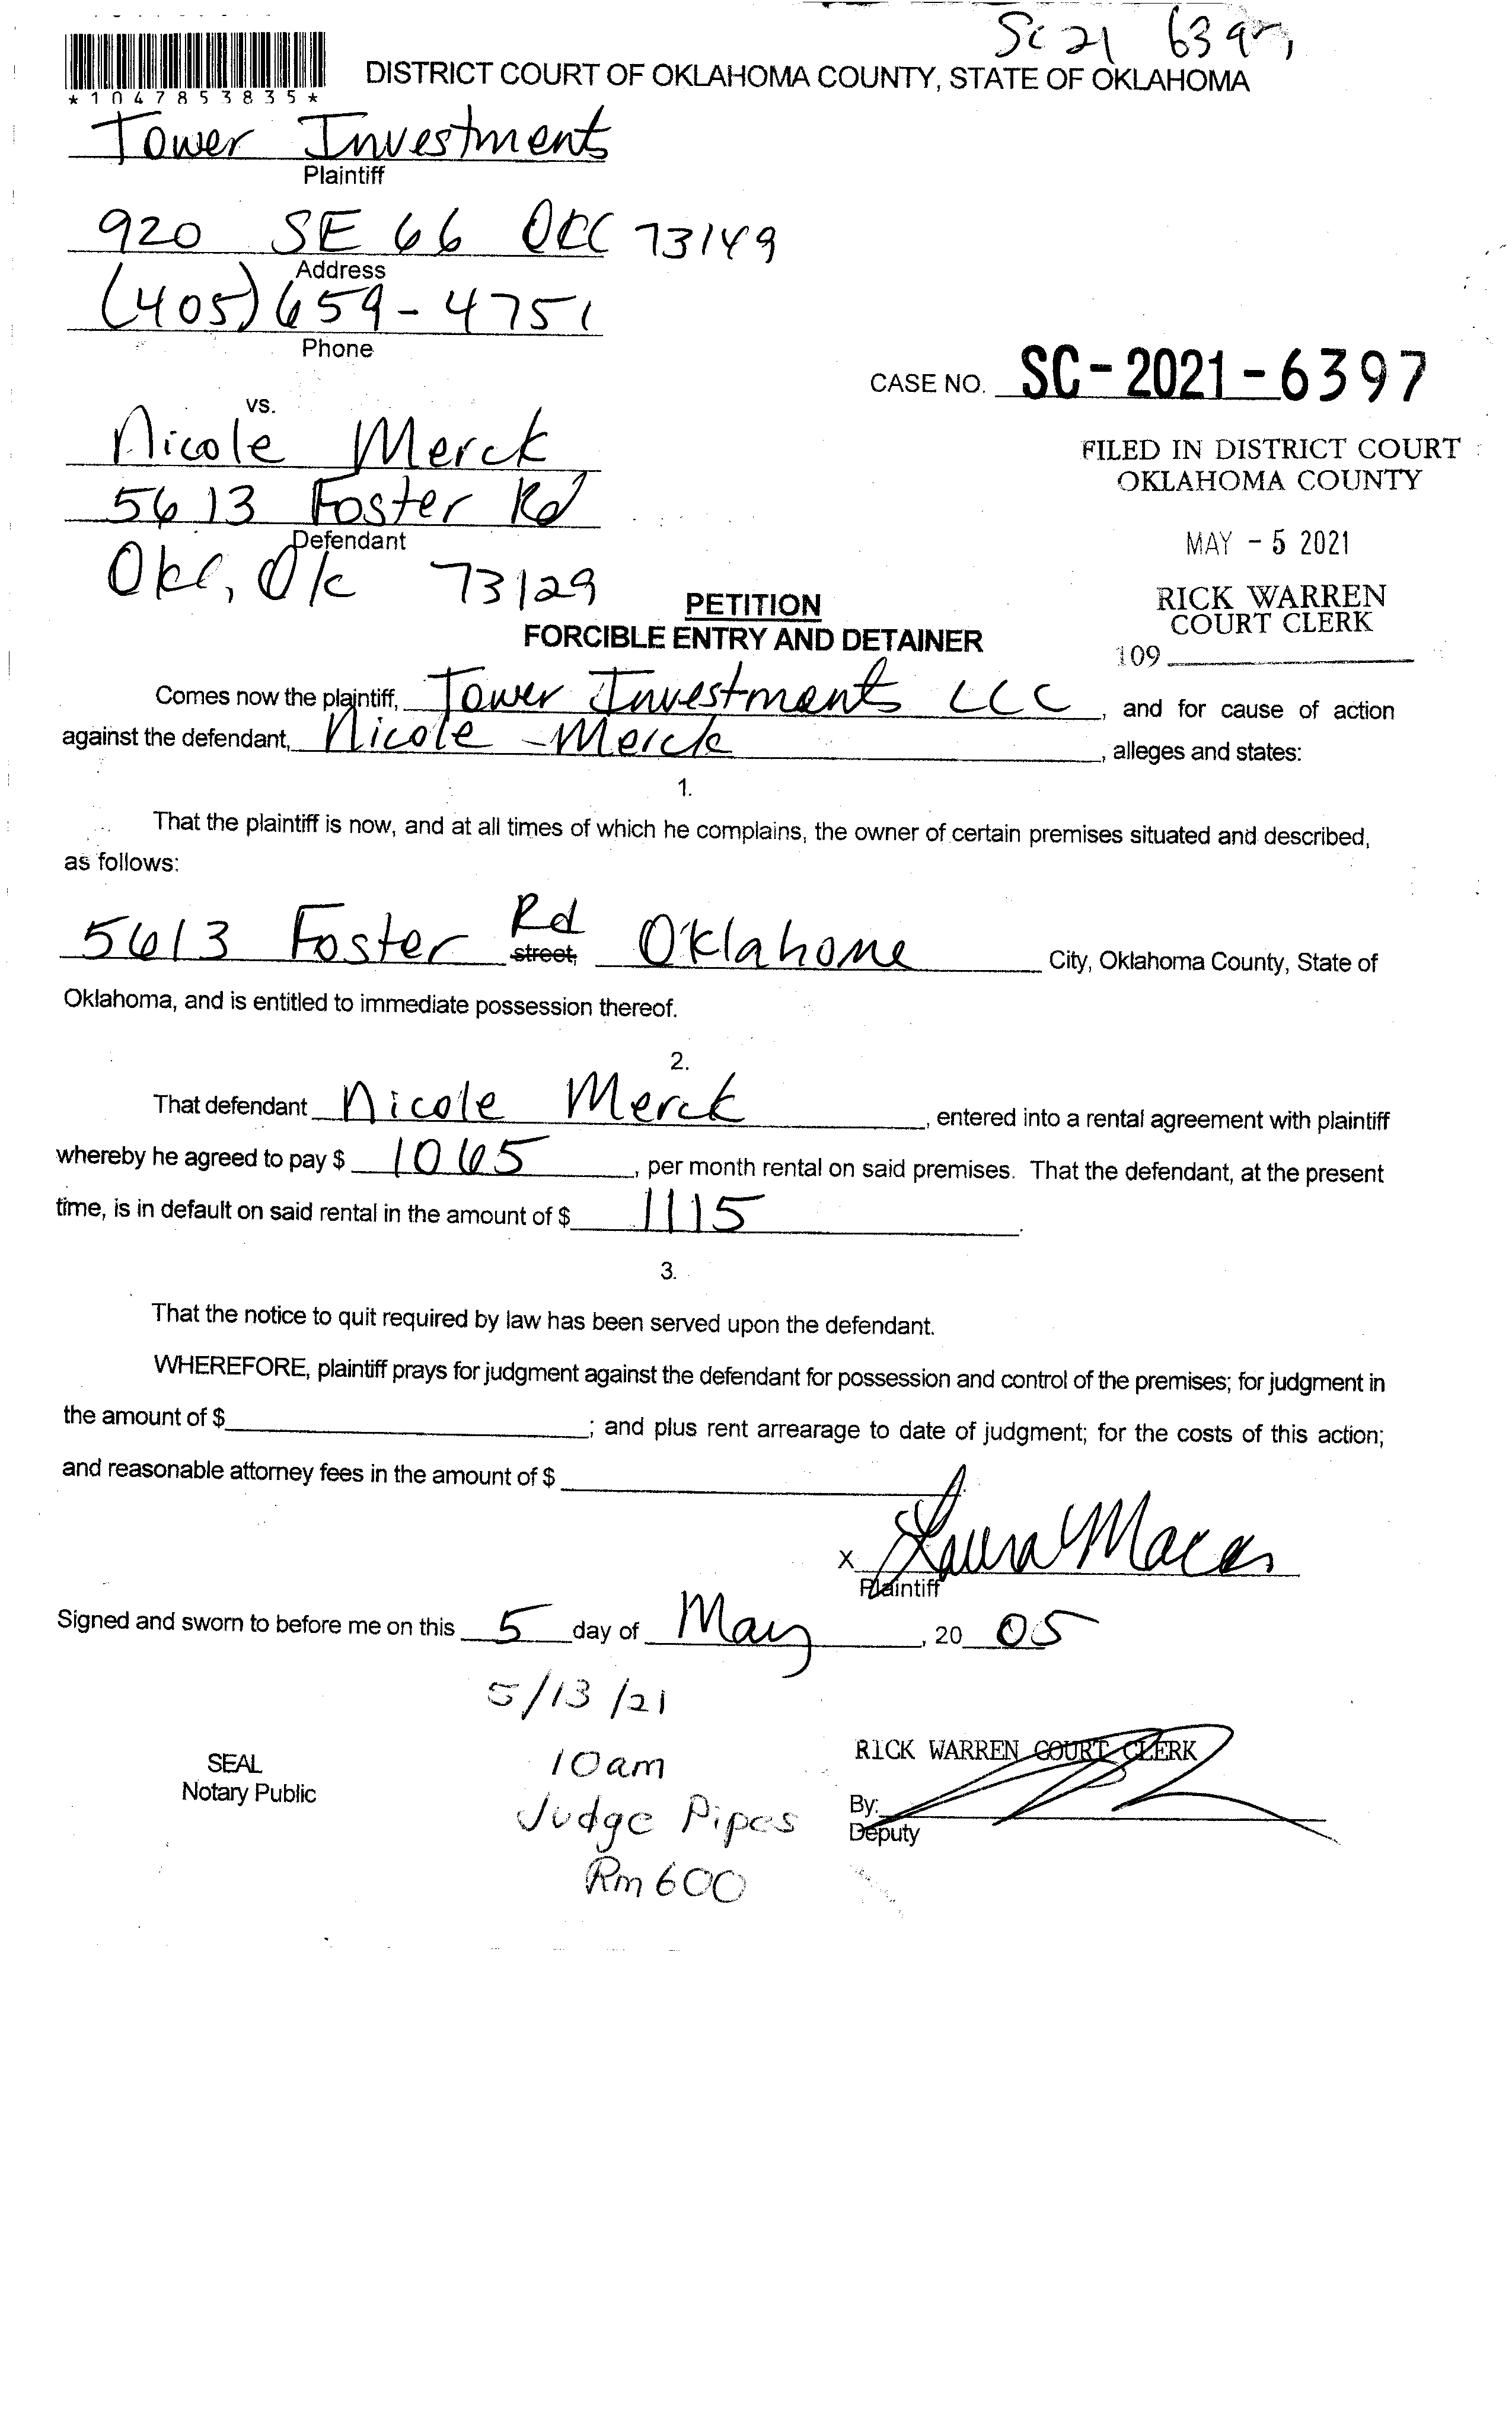 Sc 21 6397
*1047853835*
DISTRICT COURT OF OKLAHOMA COUNTY, STATE OF OKLAHOMA
Tower Investments
Plaintiff
920 SE 66 OKC 73149
Address
(405) 659-4751
Phone
CASE NO. SC-2021-6397
vs.
Nicole Merck
FILED IN DISTRICT COURT
OKLAHOMA COUNTY
5613 Foster Rd
Defendant
MAY - 5 2021
Okc, Ok 73129
RICK WARREN
COURT CLERK
PETITION
FORCIBLE ENTRY AND DETAINER
109
Comes now the plaintiff, Tower Investments LLC, and for cause of action
against the defendant, Nicole Merck, alleges and states:
1.
That the plaintiff is now, and at all times of which he complains, the owner of certain premises situated and described,
as follows:
5613 Foster Rd street, Oklahome City, Oklahoma County, State of
Oklahoma, and is entitled to immediate possession thereof.
2.
That defendant Nicole Merck, entered into a rental agreement with plaintiff
whereby he agreed to pay $ 1065, per month rental on said premises. That the defendant, at the present
time, is in default on said rental in the amount of $ 1115.
3.
That the notice to quit required by law has been served upon the defendant.
WHEREFORE, plaintiff prays for judgment against the defendant for possession and control of the premises; for judgment in
the amount of $; and plus rent arrearage to date of judgment; for the costs of this action;
and reasonable attorney fees in the amount of $
X Laura
Plaintiff
Signed and sworn to before me on this 5 day of May, 20 05
5/13/21
SEAL
Notary Public
10am
Judge Pipes
Rm 600
RICK WARREN COURT CLERK
By:
Deputy